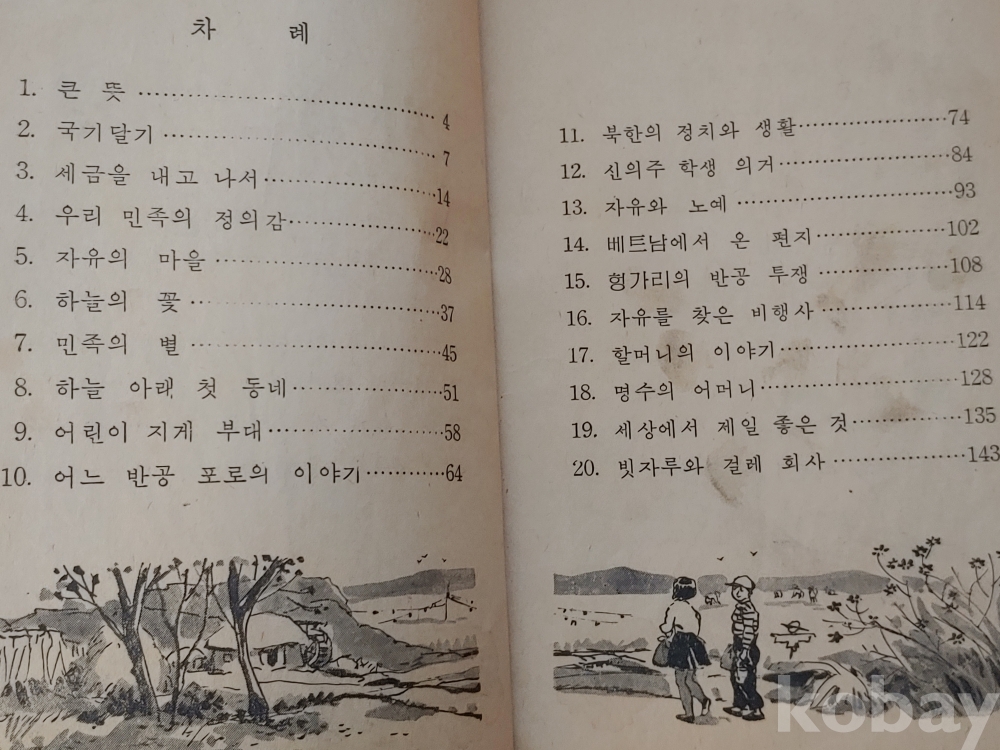 차 례
1. 큰 뜻 ………………………… 4
2. 국기달기 ………………………… 7
3. 세금을 내고 나서 ………………… 14
4. 우리 민족의 정의감 ……………… 22
5. 자유의 마을 ……………………… 28
6. 하늘의 꽃 ………………………… 37
7. 민족의 별 ………………………… 45
8. 하늘 아래 첫 동네 ……………… 51
9. 어린이 지게 부대 ………………… 58
10. 어느 반공 포로의 이야기 ………… 64
11. 북한의 정치와 생활 ……………… 74
12. 신의주 학생 의거 ………………… 84
13. 자유와 노예 ……………………… 93
14. 베트남에서 온 편지 ……………… 102
15. 헝가리의 반공 투쟁 ……………… 108
16. 자유를 찾은 비행사 ……………… 114
17. 할머니의 이야기 ………………… 122
18. 명수의 어머니 …………………… 128
19. 세상에서 제일 좋은 것 …………… 135
20. 빗자루와 걸레 회사 ……………… 143
kobay